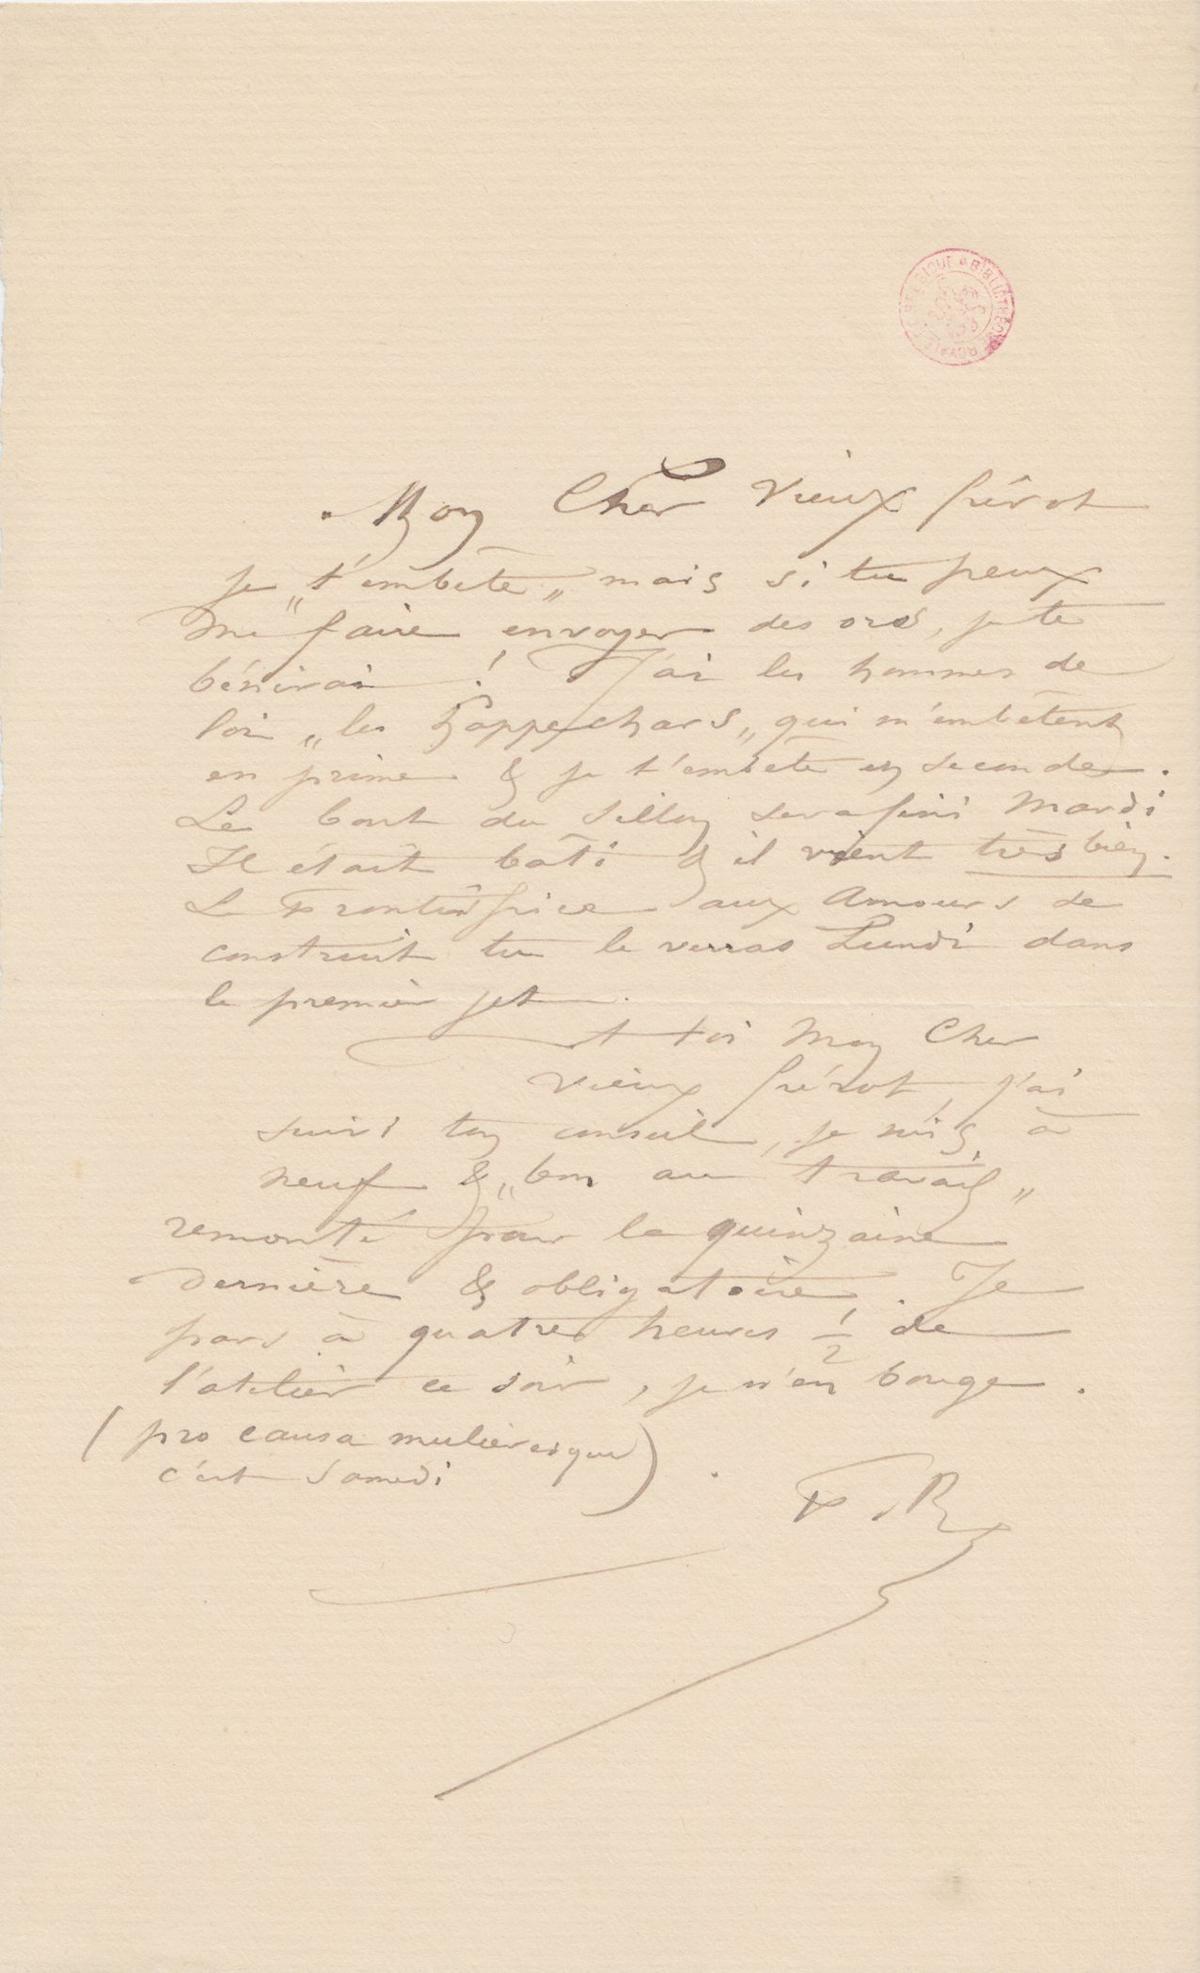 BIBLIOTHÈQUE ROYALE DE BELGIQUE
Mon Cher Vieux frérot
je "t'embête" mais si tu peux
me faire envoyer des ors, je te
bénirai ! J'ai les hommes de
loi "les happechars" qui m'embêtent
en prime & je t'embête en seconde.
Le bout du sillon sera fini Mardi
Il était bâti & il vient très bien.
Le Frontispice aux Amours se
construit tu le verras Lundi dans
le premier jet.
A toi Mon Cher
Vieux frérot, j'ai
suivi ton conseil, je suis à
neuf & "bon au travail"
remonté pour la quinzaine
dernière & obligatoire. Je
pars à quatre heures 1/2 de
l'atelier ce soir, je n'en bouge.
(pro causa mulieresque
c'est Samedi).
F.R